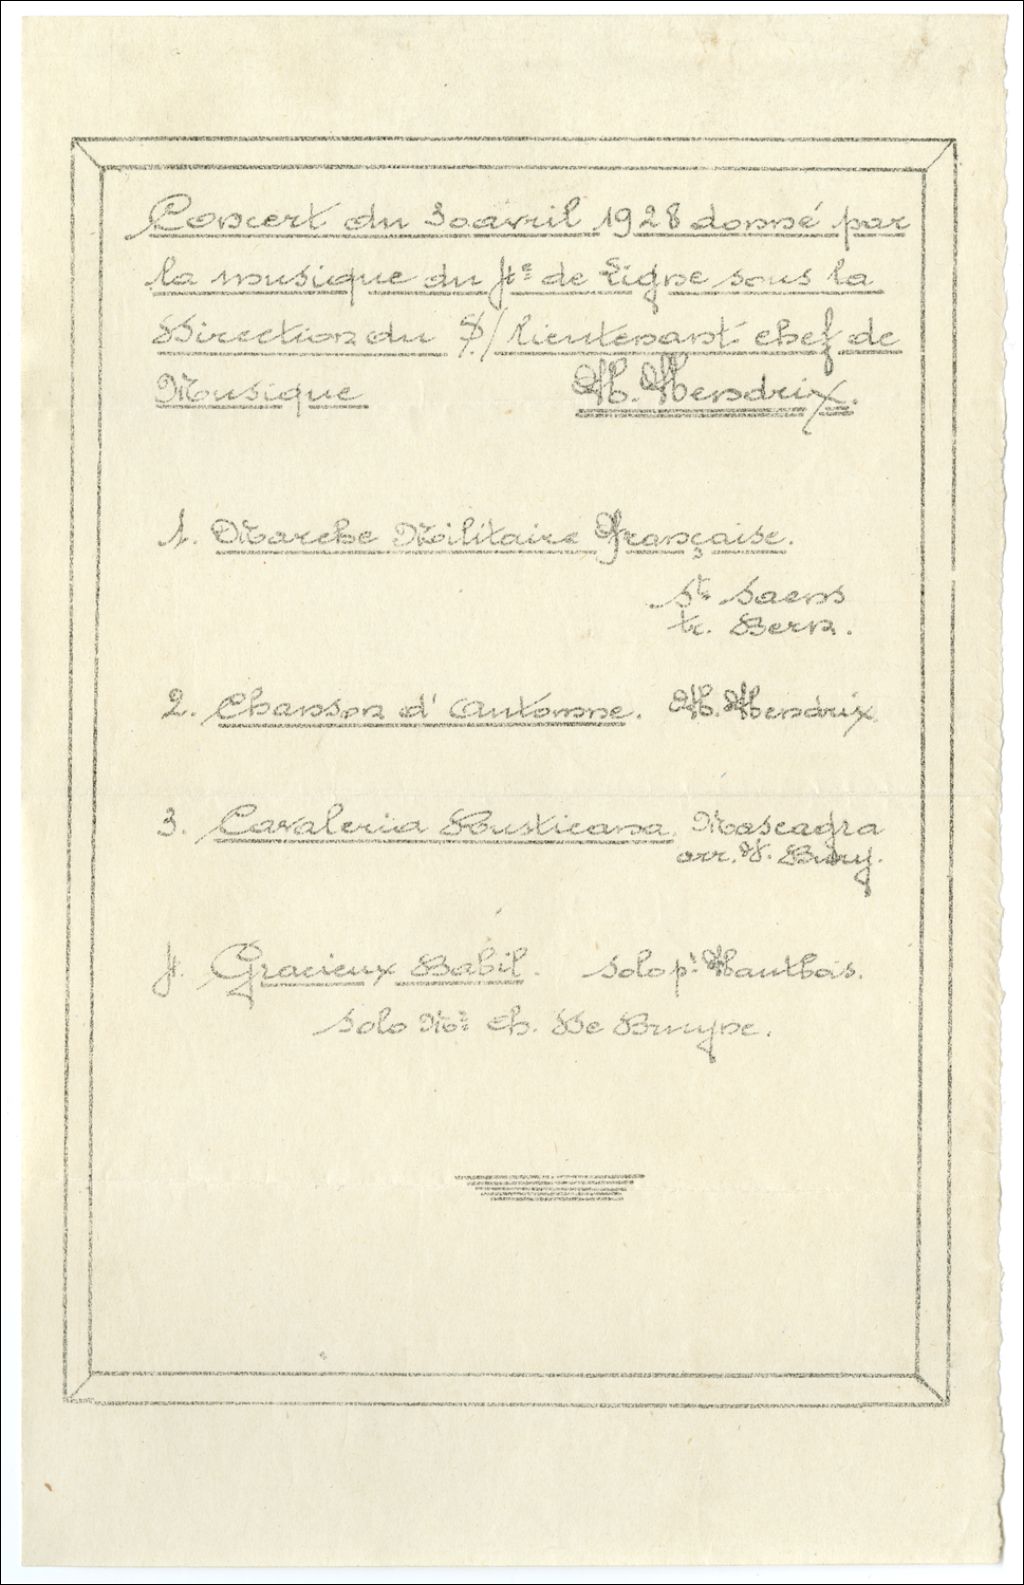 Concert du 30 avril 1928 donné par
la musique du 4e de Ligne sous la
Direction du S/lieutenant chef de
Musique H. Hendrix.
1. Marche Militaire Française.
St Saens
tr. Bern.
2. Chanson d'Automne. H. Hendrix
3. Cavaleria Rusticana. Mascagna
arr. V. Bury.
4. Gracieux Babil. Solo pr Hautbois.
Solo Mr Ch. De Bruyne.